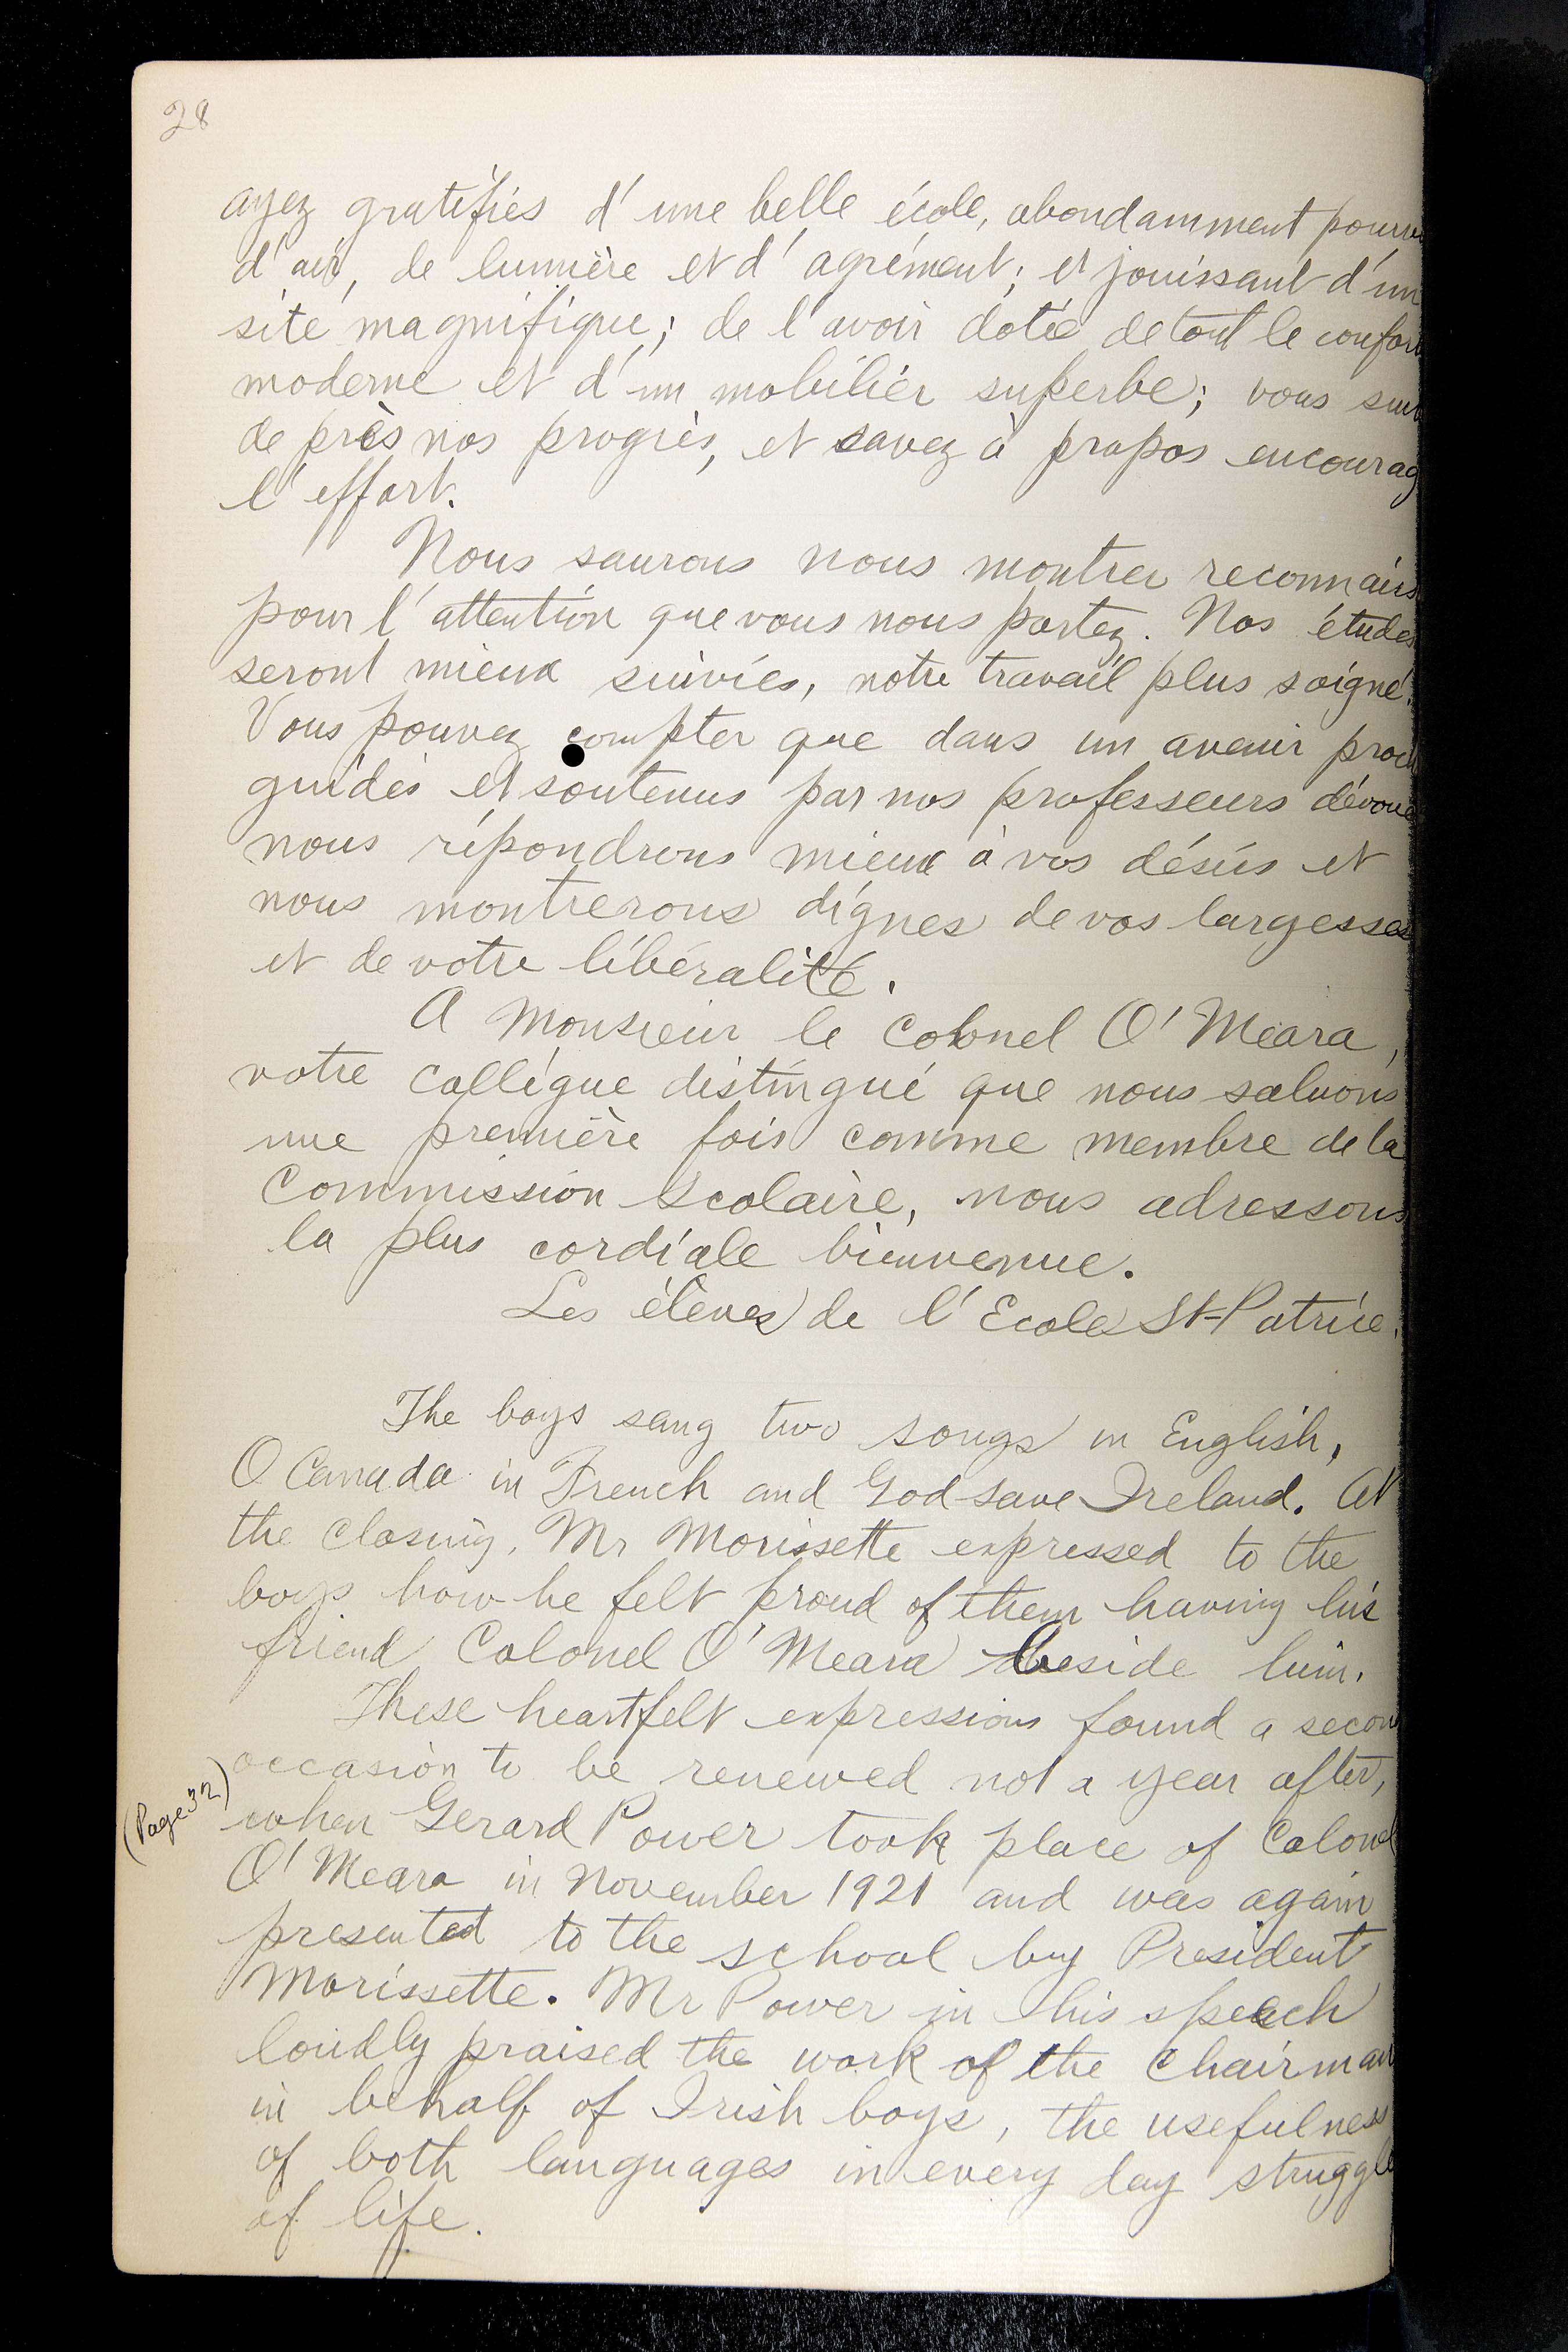 28
ayez gratifiés d'une belle école, abondamment pourvu
d'air, de lumière et d'agrément; et jouissant d'un
site magnifique; de l'avoir dotée de tout le confort
moderne et d'un mobilier superbe; vous suiv
de près nos progrès, et savez à propos encourag
l'effort.
Nous saurons nous montrer reconnaiss
pour l'attention que vous nous portez. Nos études
seront mieux suivies, notre travail plus soigné.
Vous pouvez compter que dans un avenir proch
guidés et soutenus par nos professeurs dévoué
nous répondrons mieux à vos désirs et
nous montrerons dignes de vos largesses
et de votre libéralité.
A Monsieur le Colonel O'Meara,
votre collègue distingué que nous saluons
une première fois comme membre de la
Commission Scolaire, nous adressons
la plus cordiale bienvenue.
Les élèves de l'Ecole St-Patrice.
The boys sang two songs in English,
O Canada in French and God save Ireland. At
the closing, Mr Morissette expressed to the
boys how he felt proud of them having his
friend Colonel O'Meara beside him.
These heartfelt expressions found a secon
occasion to be renewed not a year after,
(Page 32)
when Gerard Power took place of Colonel
O'Meara in November 1921 and was again
presented to the school by President
Morissette. Mr Power in his speech
loudly praised the work of the Chairman
in behalf of Irish boys, the usefulness
of both languages in every day struggle
of life.